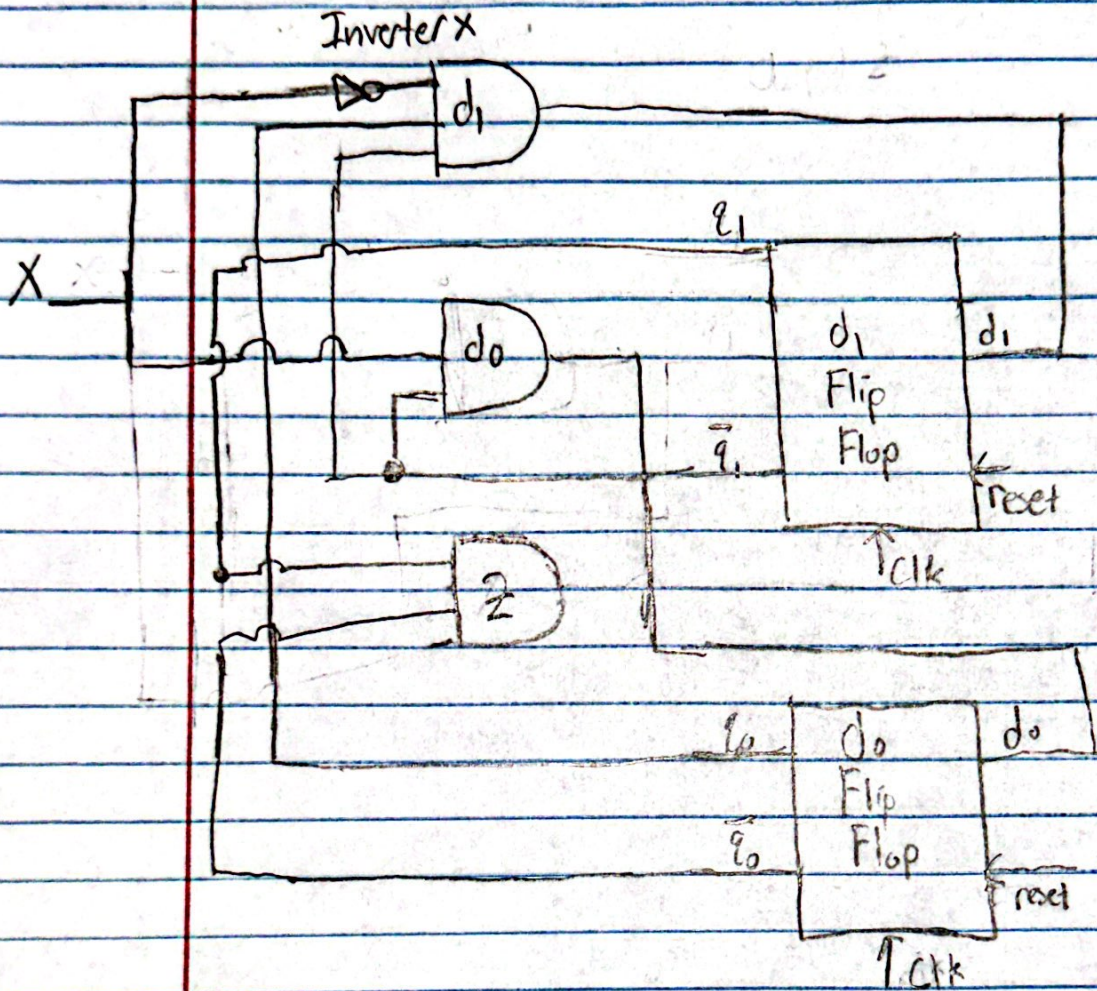 Inverter X
d1
q1
X
d0
d1
Flip
Flop
d1
q̅1
reset
Clk
Z
q0
d0
Flip
Flop
d0
q̅0
reset
Clk